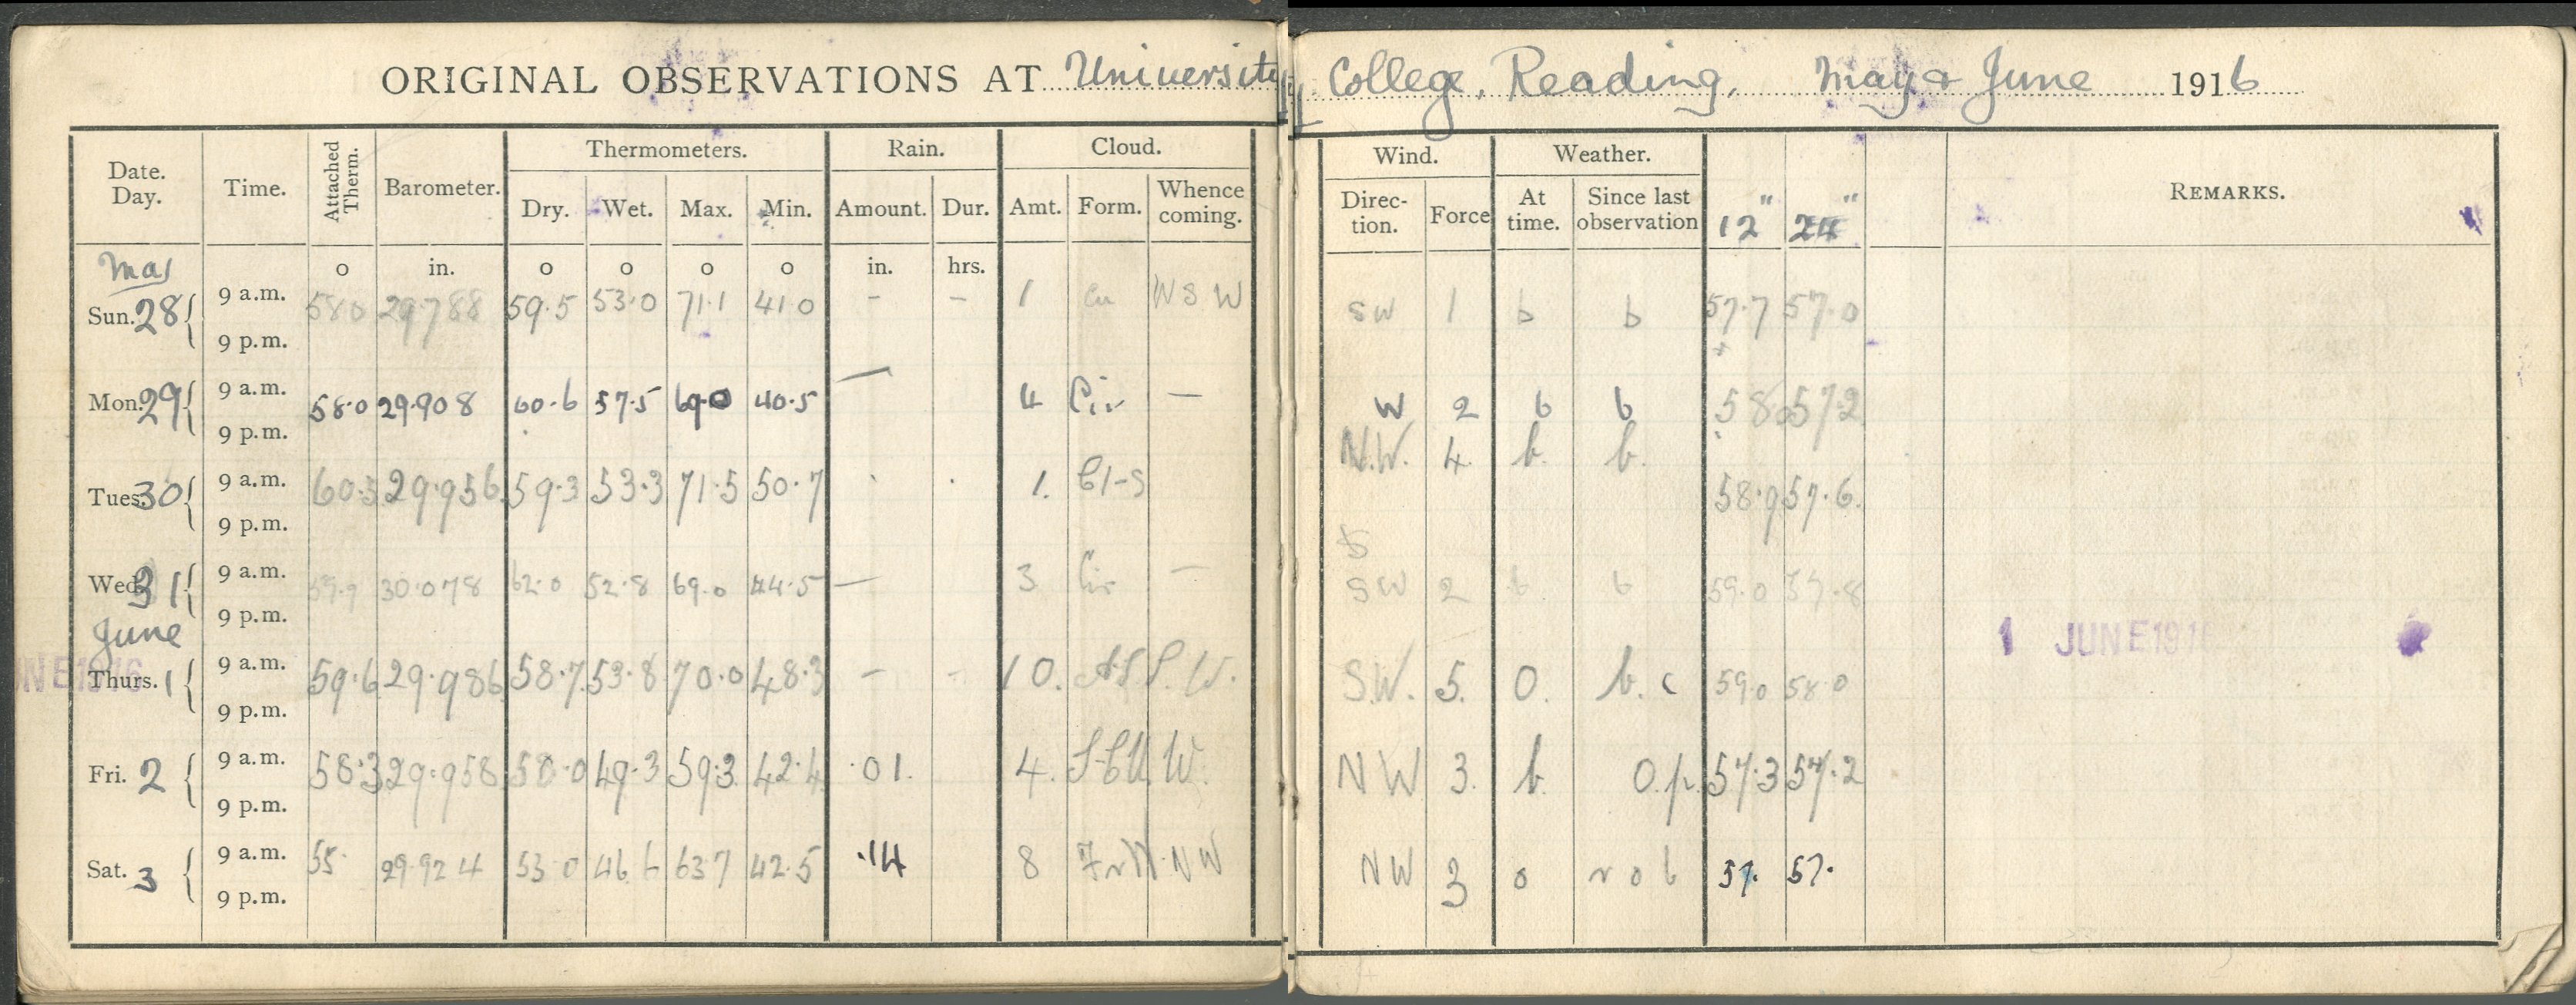 ORIGINAL OBSERVATIONS AT University College, Reading, May & June 1916
Date. Day. Time. Attached Therm. Barometer. Thermometers. Rain. Cloud. Wind. Weather. REMARKS.
Dry. Wet. Max. Min. Amount. Dur. Amt. Form. Whence coming. Direc-tion. Force At time. Since last observation 12" 24"
May o in. o o o o in. hrs.
Sun. 28 { 9 a.m. 58.0 29.788 59.5 53.0 71.1 41.0 - - 1 Cu WSW SW 1 b b 57.7 57.0
9 p.m.
Mon. 29 { 9 a.m. 58.0 29.908 60.6 57.5 69.0 40.5 — 4 Cir — W 2 b b 58.0 57.2
9 p.m.
Tues. 30 { 9 a.m. 60.5 29.956 59.3 53.3 71.5 50.7 . . 1. Cl-S N.W. 4. b. b. 58.9 57.6.
9 p.m.
Wed. 31 { 9 a.m. 59.9 30.078 62.0 52.8 69.0 44.5 — 3 Cir — SW 2 b b 59.0 57.8
9 p.m.
June
1 JUNE 1916
Thurs. 1 { 9 a.m. 59.6 29.986 58.7 53.8 70.0 48.3 - - 10. A-S S.W. S.W. 5. O. b.c 59.0 58.0
9 p.m.
Fri. 2 { 9 a.m. 58.3 29.958 49.3 59.3 42.4 .01. 4. S-CU. W. NW 3. b. O.p. 57.3 57.2
9 p.m.
Sat. 3 { 9 a.m. 55. 29.924 53.0 46.6 63.7 42.5 .14 8 NW NW 3 o r o b 57. 57.
9 p.m.